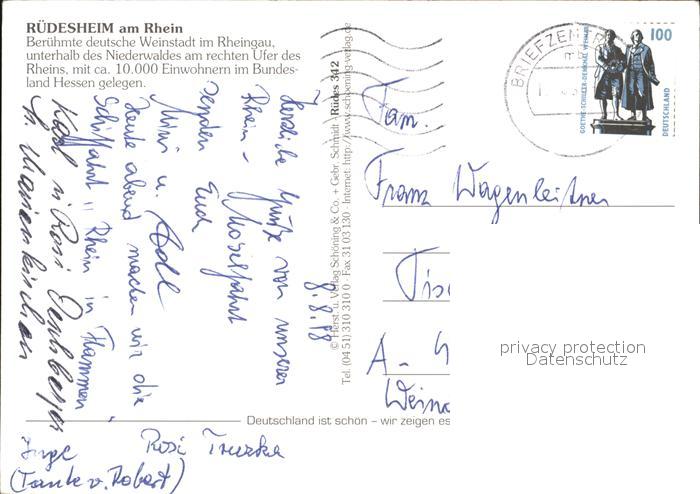 RÜDESHEIM am Rhein
Berühmte deutsche Weinstadt im Rheingau,
unterhalb des Niederwaldes am rechten Ufer des
Rheins, mit ca. 10.000 Einwohnern im Bundes-
land Hessen gelegen.
8.8.98
Herzliche Grüße von unserer
Rhein- Moselfahrt
senden Euch
Mini u. Adl
Heute abend machen wir die
Schiffahrt "Rhein in Flammen"
Karl u Rosi
Marienkirchen
Inge Rosi
(Tante v. Robert)
Deutschland ist schön – wir zeigen es
© Herst. u. Verlag Schöning & Co. + Gebr. Schmidt Rüdes 342
Tel. (04 51) 310 310 0 · Fax 31 03 130 · Internet: http://www.schoening-verlag.de
BRIEFZEN
GOETHE-SCHILLER-DENKMAL WEIMAR
100
DEUTSCHLAND
Fam.
Franz Wagenleitner
A -
privacy protection
Datenschutz